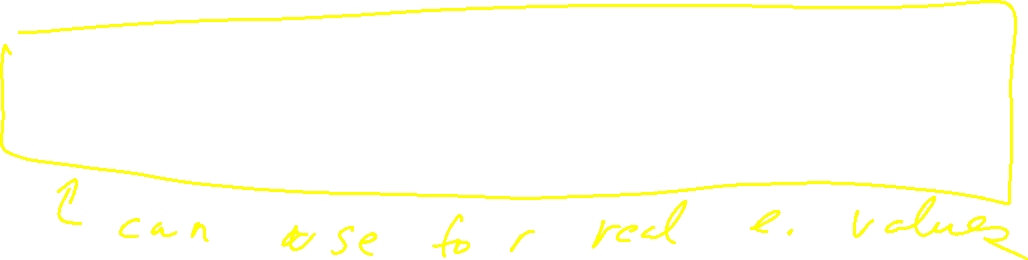 can use for real e. values